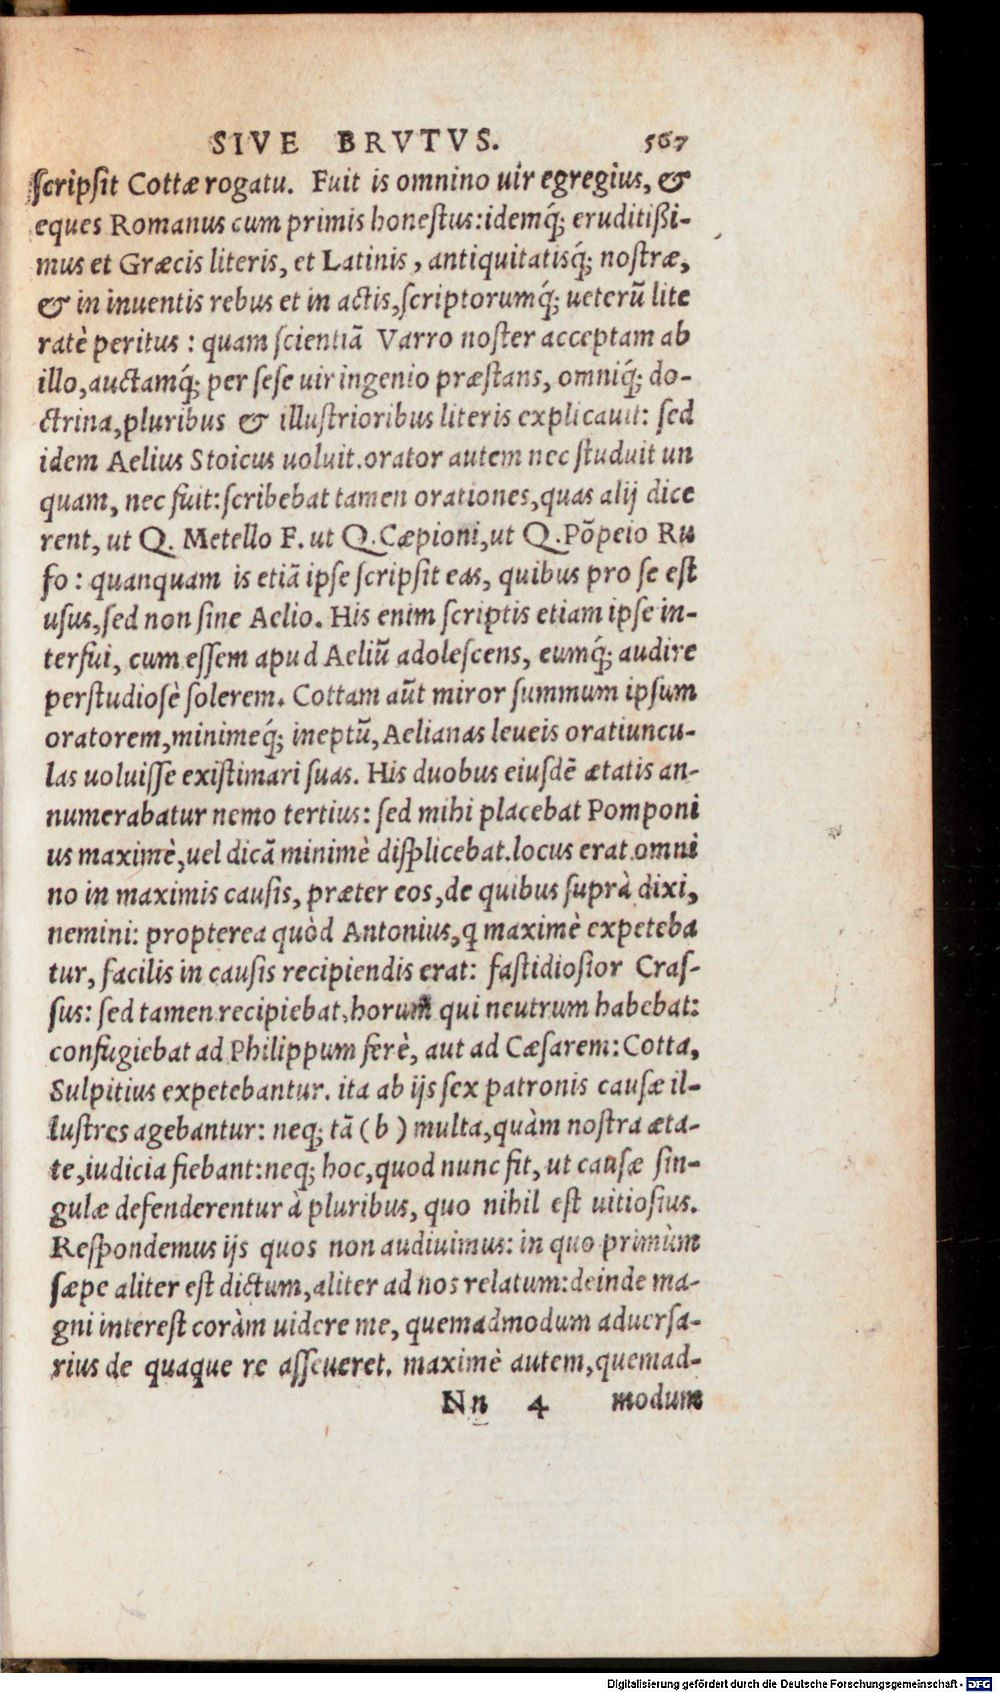 SIVE BRVTVS. 567
ſcripſit Cottæ rogatu. Fuit is omnino uir egregius, &
eques Romanus cum primis honeſtus: idemq́; eruditißi-
mus et Græcis literis, et Latinis, antiquitatisq́; noſtræ,
& in inuentis rebus et in actis, ſcriptorumq́; ueterũ lite
ratè peritus : quam ſcientiã Varro noſter acceptam ab
illo, auctamq́; per ſeſe uir ingenio præſtans, omniq́; do-
ctrina, pluribus & illuſtrioribus literis explicauit: ſed
idem Aelius Stoicus uoluit. orator autem nec ſtuduit un
quam, nec fuit: ſcribebat tamen orationes, quas alij dice
rent, ut Q. Metello F. ut Q. Cæpioni, ut Q. Põpeio Ru
fo : quanquam is etiã ipſe ſcripſit eas, quibus pro ſe eſt
uſus, ſed non ſine Aelio. His enim ſcriptis etiam ipſe in-
terfui, cum eſſem apud Aeliũ adoleſcens, eumq́; audire
perſtudioſè ſolerem. Cottam aũt miror ſummum ipſum
oratorem, minimeq́; ineptũ, Aelianas leueis oratiuncu-
las uoluiſſe exiſtimari ſuas. His duobus eiuſdẽ ætatis an-
numerabatur nemo tertius: ſed mihi placebat Pomponi
us maximè, uel dicã minimè diſplicebat. locus erat omni
no in maximis cauſis, præter eos, de quibus ſuprà dixi,
nemini: propterea quòd Antonius, q maximè expeteba
tur, facilis in cauſis recipiendis erat: faſtidioſior Craſ-
ſus: ſed tamen recipiebat. horum qui neutrum habebat:
confugiebat ad Philippum ferè, aut ad Cæſarem: Cotta,
Sulpitius expetebantur. ita ab ijs ſex patronis cauſæ il-
luſtres agebantur: neq; tã ( b ) multa, quàm noſtra æta-
te, iudicia fiebant: neq; hoc, quod nunc fit, ut cauſæ ſin-
gulæ defenderentur à pluribus, quo nihil eſt uitioſius.
Reſpondemus ijs quos non audiuimus: in quo primùm
ſæpe aliter eſt dictum, aliter ad nos relatum: deinde ma-
gni intereſt coràm uidere me, quemadmodum aduerſa-
rius de quaque re aſſeueret. maximè autem, quemad-
Nn 4 modum
Digitalisierung gefördert durch die Deutsche Forschungsgemeinschaft - DFG